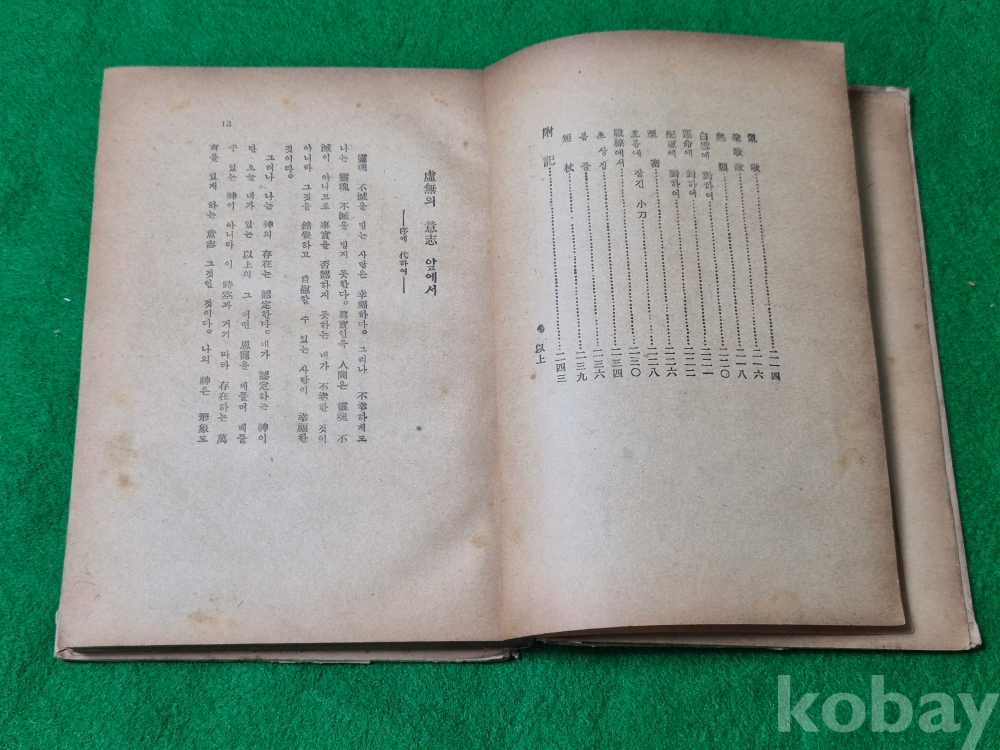 歌 二一四
歌隊 二一六
熱 二一八
白雲에 對하여 二二〇
運命에 對하여 二二一
配慮에 對하여 二二二
密 二二六
잠긴 小刀 二二八
戰線에서 二三〇
초상집 二三四
二三六
短 杖 二三九
附 記 二四三
以上
虛無의 意志 앞에서
──序에 代하여──
靈魂 不滅을 믿는 사람은 幸福하다。그러나 不幸하게도
나는 靈魂 不滅을 믿지 못한다。眞實인즉 人間은 靈魂 不
滅이 아니고로 事實을 否認하지 못하는 내가 不幸한 것이
아니라 그것을 錯覺하고 自慰할 수 있는 사람이 幸福한
것이다。
그러나 나는 神의 存在는 認定한다。내가 認定하는 神이
란 오늘 내가 있는 以上의 그 어떤 恩寵을 베풀며 베풀
수 있는 神이 아니라 이 時空과 거기 따라 存在하는 萬
有를 있게 하는 意志 그것인 것이다。나의 神은 形象도
13
kobay